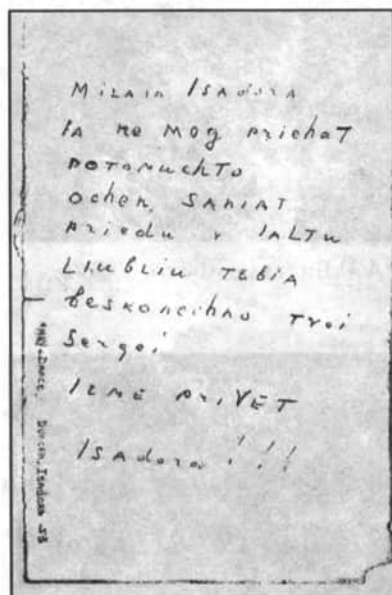 Milaia Isadora
ia ne mog prichat
potomuchto
ochen, saniat
priedu v ialtu
Liubliu tebia
beskonechno tvoi
Sergei
Irme privet
Isadora!!!
Duncan, Isadora